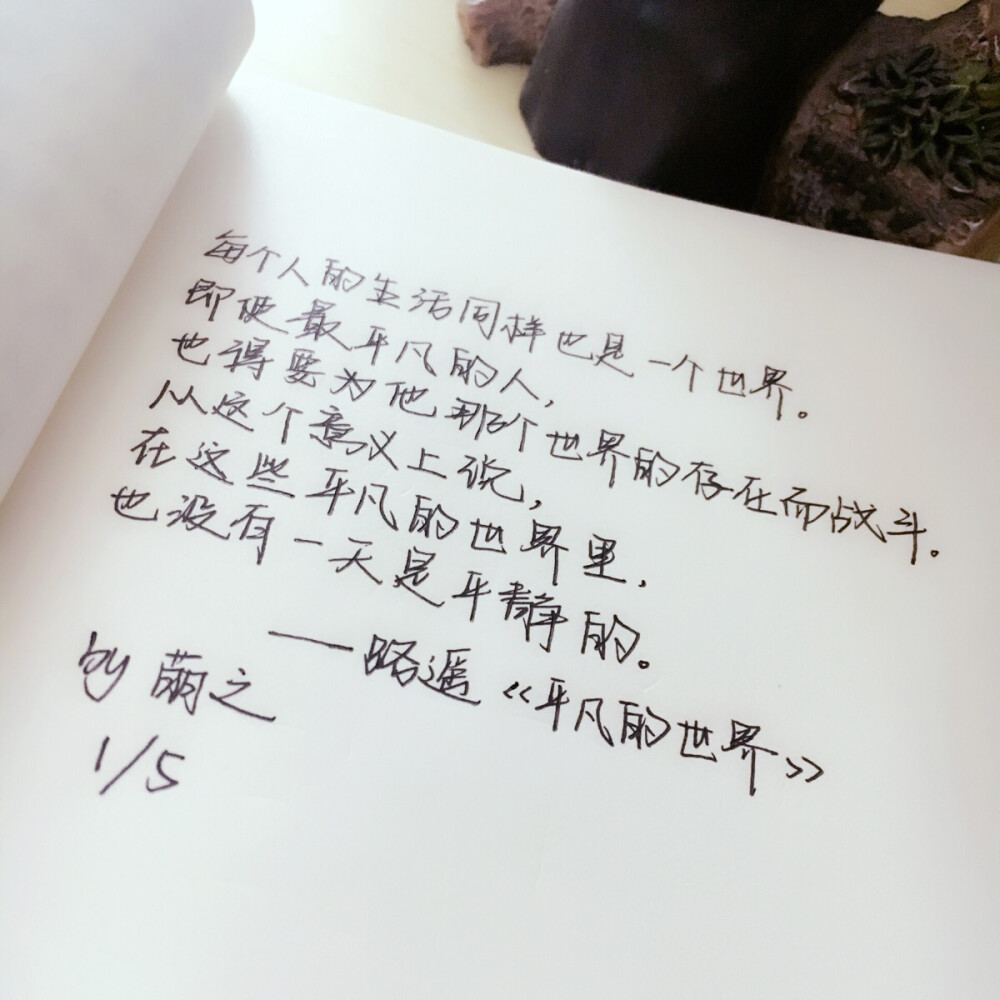 每个人的生活同样也是一个世界。
即使最平凡的人，
也得要为他那个世界的存在而战斗。
从这个意义上说，
在这些平凡的世界里，
也没有一天是平静的。
——路遥《平凡的世界》
by 萠之
1/5